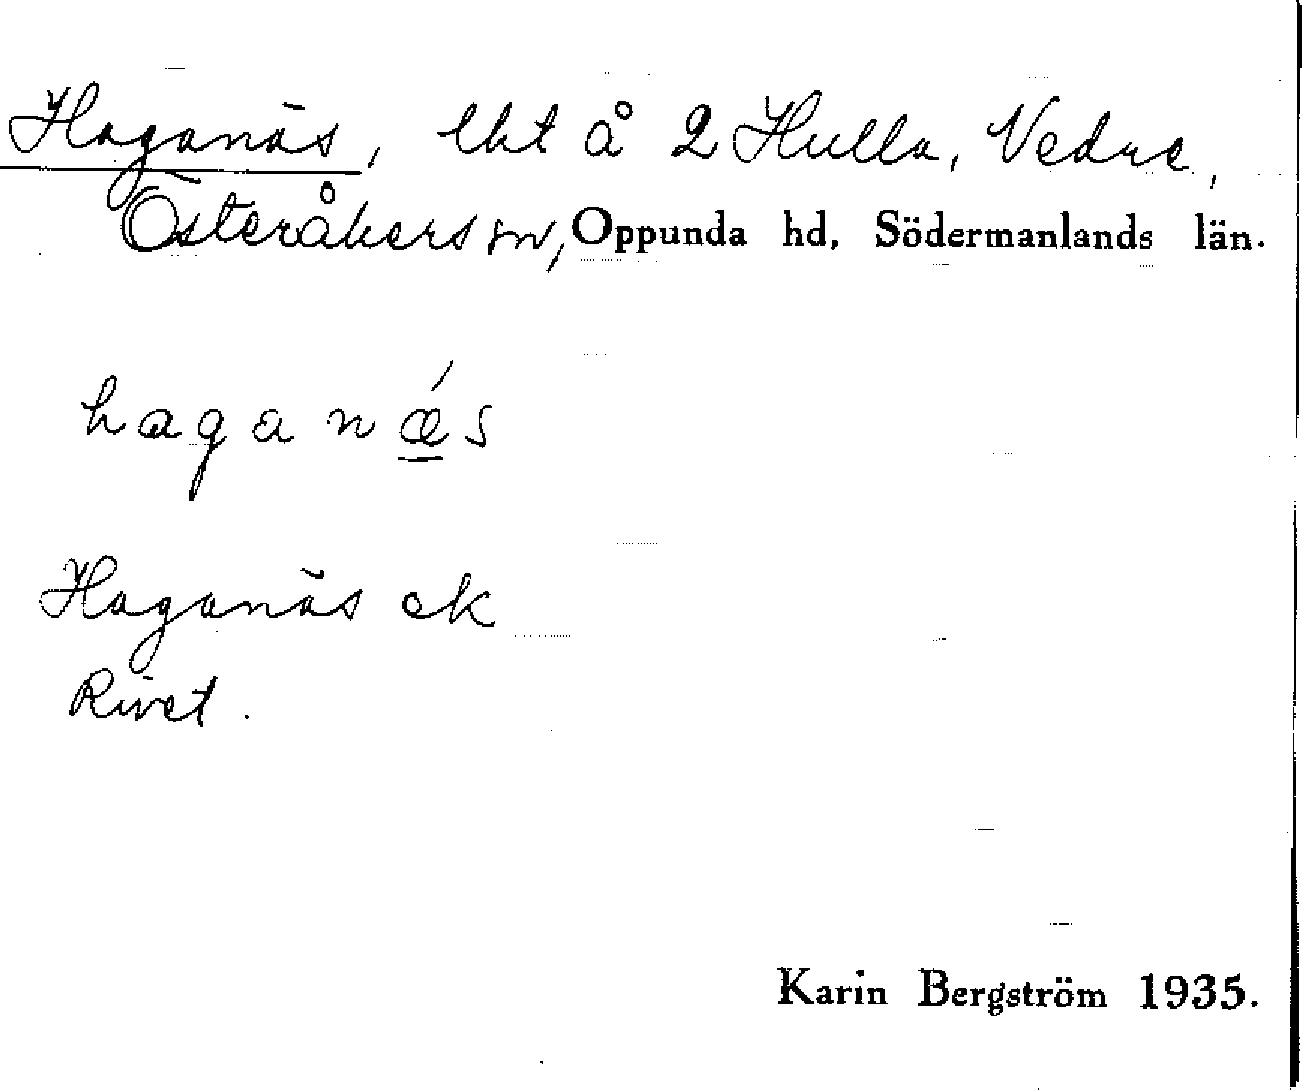 Haganäs, lht å 2 Hulla, Vedne,
Österåkers sn, Oppunda hd, Södermanlands län.
haganǽs
Haganäs ek
Rivet.
Karin Bergström 1935.